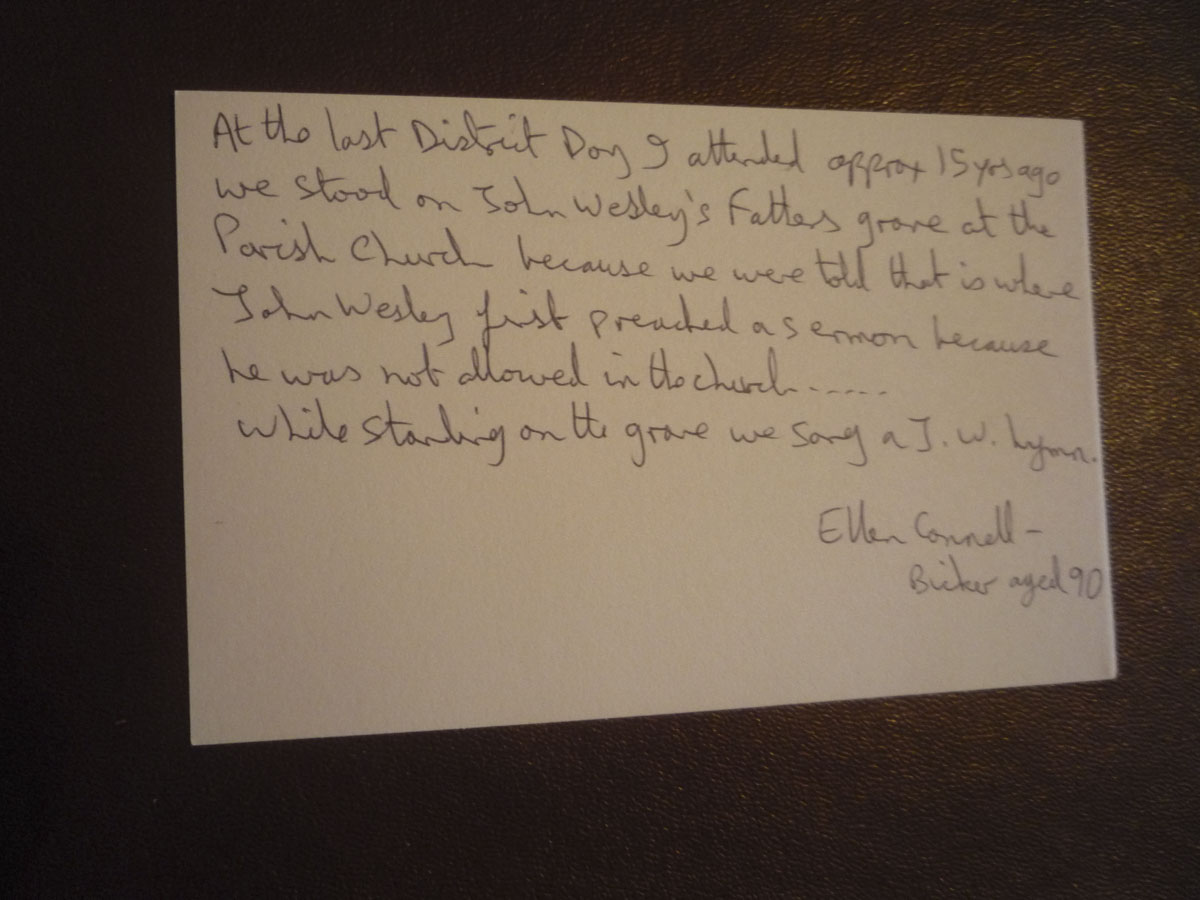 At the last District Day I attended approx 15 yrs ago
we stood on John Wesley's Fathers grave at the
Parish Church because we were told that is where
John Wesley first preached a sermon because
he was not allowed in the church......
While standing on the grave we sang a J. W. hymn.
Ellen Connell -
Bicker aged 90